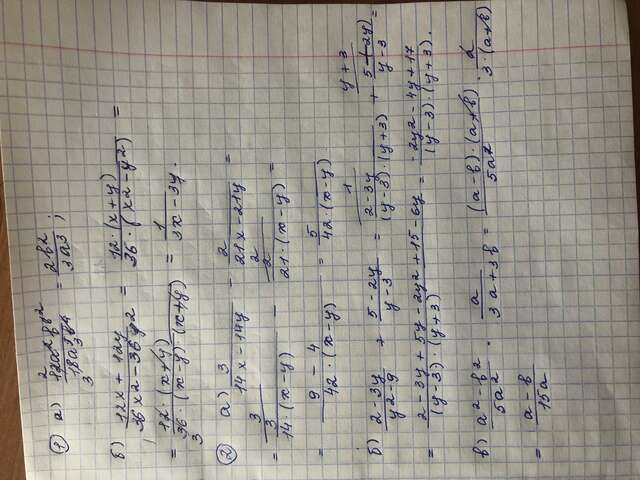 ① а) 12a²b² / 18a³b⁴ = 2b² / 3a³ ;
б) 12x + 12y / 36x² - 36y² = 12(x+y) / 36·(x² y²) =
= 12·(x+y) / 36·(x-y)·(x+y) = 1 / 3x - 3y .
② а) 3 / 14x - 14y - 2 / 21x - 21y =
= 3 / 14·(x-y) - 2 / 21·(x-y) =
= 9 - 4 / 42·(x-y) = 5 / 42·(x-y)
б) 2 - 3y / y² - 9 + 5 - 2y / y - 3 = 2 - 3y / (y-3)·(y+3) + 5 - 2y) / y - 3 =
= 2 - 3y + 5y - 2y² + 15 - 6y / (y-3)·(y+3) = -2y² - 4y + 17 / (y-3)·(y+3) .
в) a² - b² / 5a² · a / 3a + 3b = (a-b)·(a+b) / 5a² · a / 3·(a+b)
= a - b / 15a